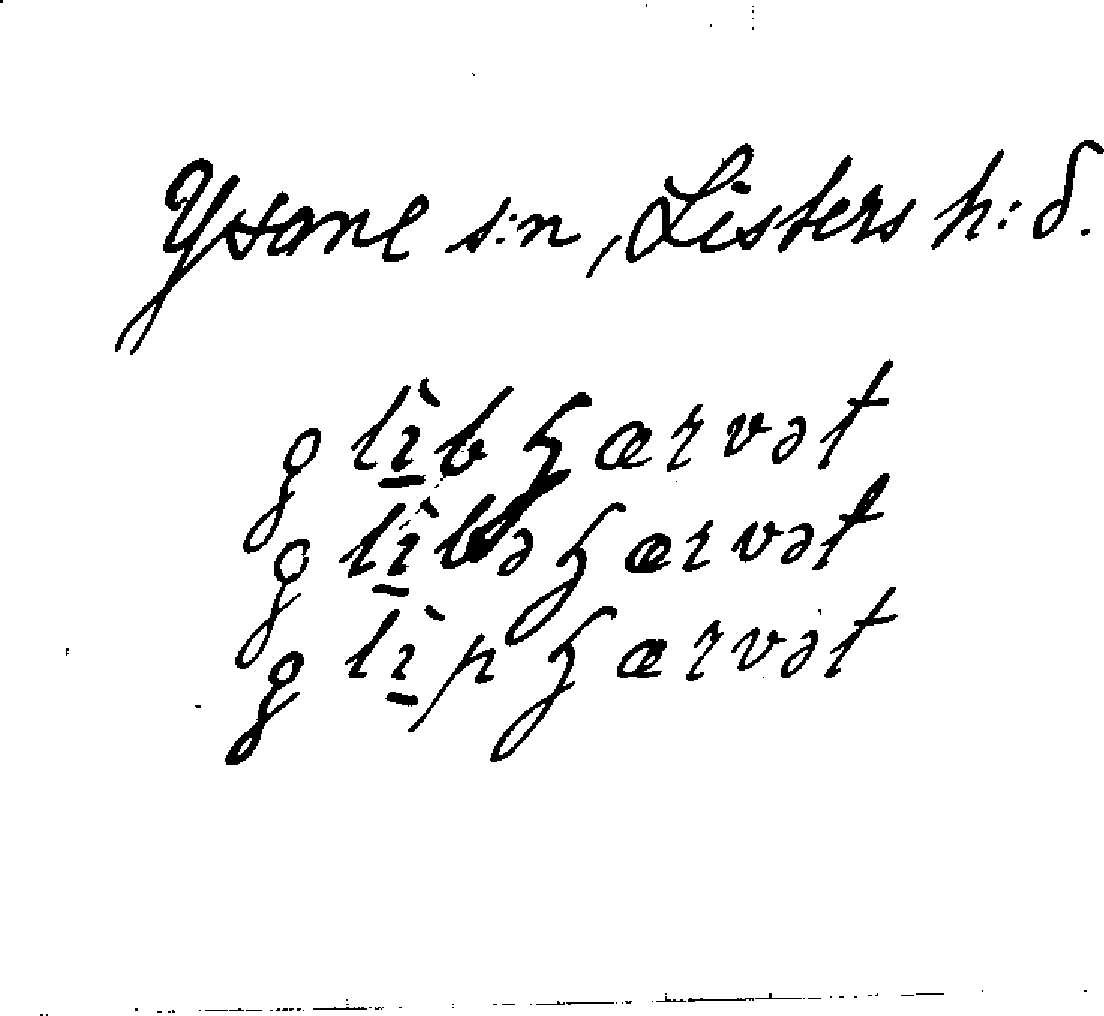 Ysane s:n, Listers h:d.
g lìb hærvət
g lìbə hærvət
g lìp hærvət